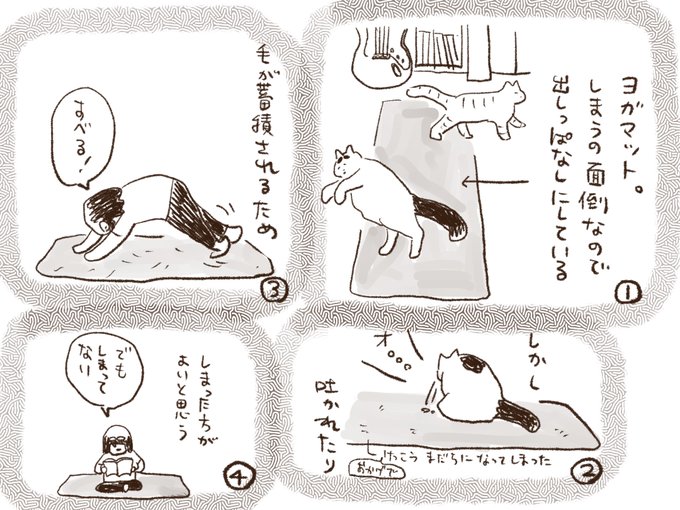 ヨガマット。
しまうの面倒なので
出しっぱなしにしている
①
しかし
オ。。。
吐かれたり
けっこう まだらになってしまった
おかげで
②
毛が蓄積されるため
すべる!
③
しまったちが
よいと思う
でも
しまって
ない
④